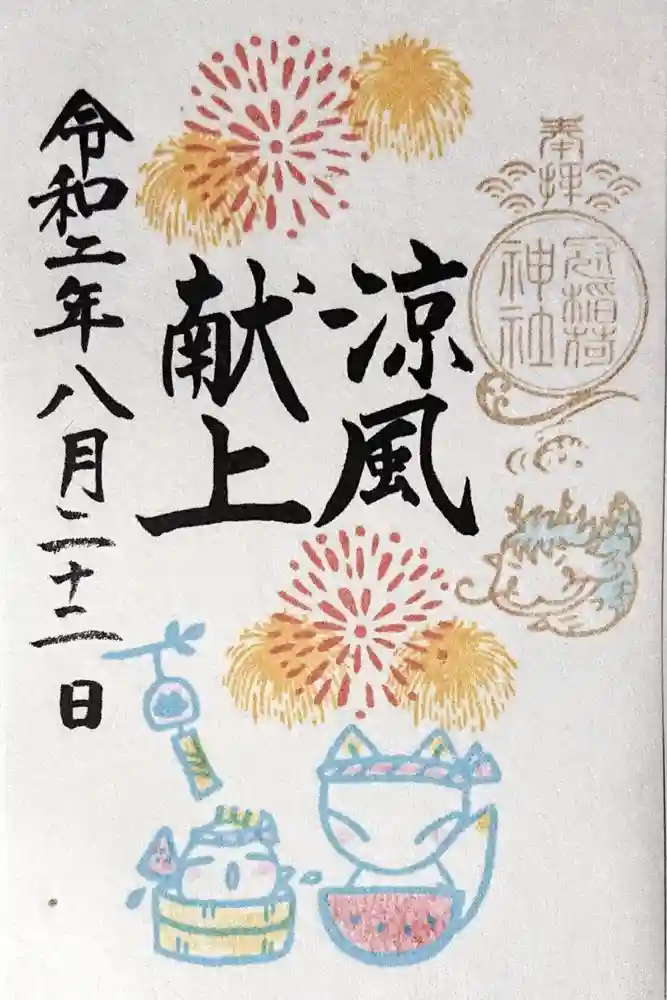 奉拝
冠稲荷
神社
涼風
献上
令和二年八月二十二日